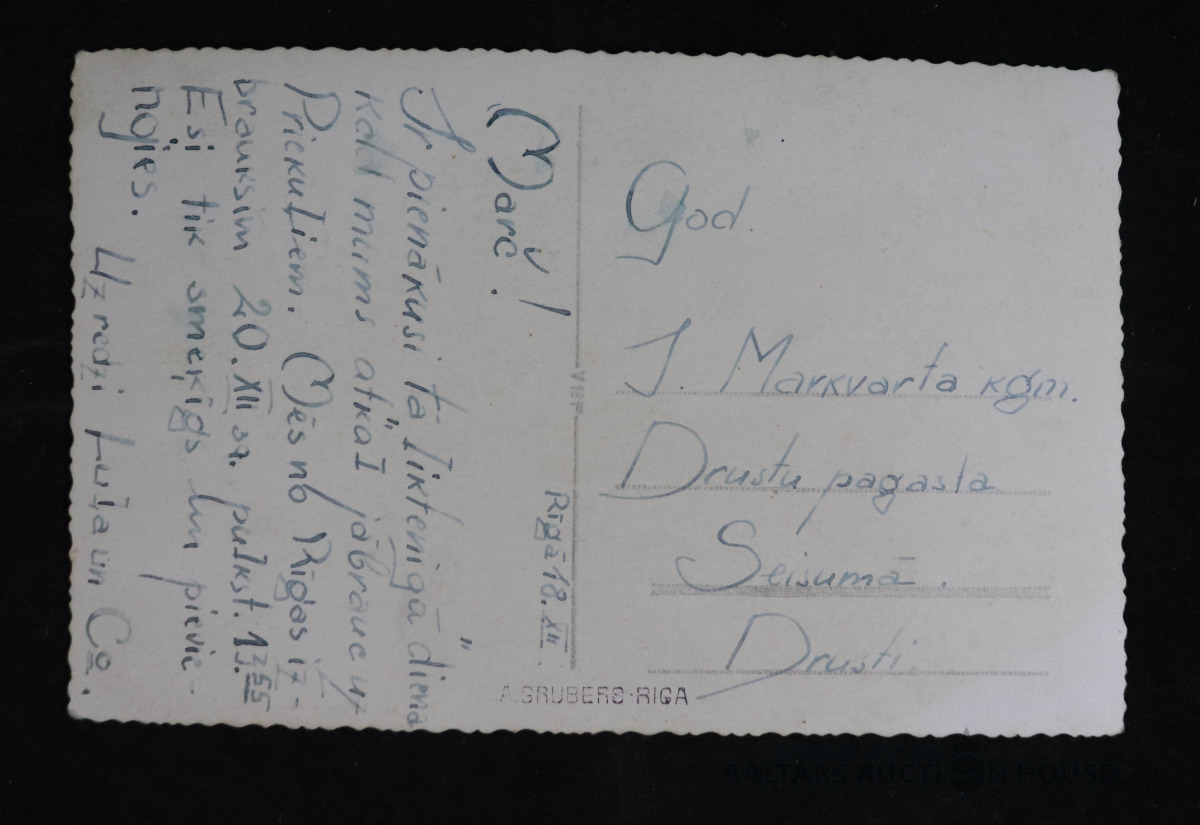 Rīgā 18.XII.
Marč!
Ir pienākusi tā "liktenīgā" diena
kad mums atkal jābrauc uz
Priekuļiem. Mēs no Rīgas iz-
brauksim 20.XII šg. pulkst. 13.55
Esi tik smeķīgs un pievie-
nojies. Uz redzi Luļa un Co.
VIEF
God.
J. Markvarta kgm.
Drustu pagasta
Seisumā.
Drusti.
A.GRUBERS·RIGA
BALTARS AUCTION HOUSE